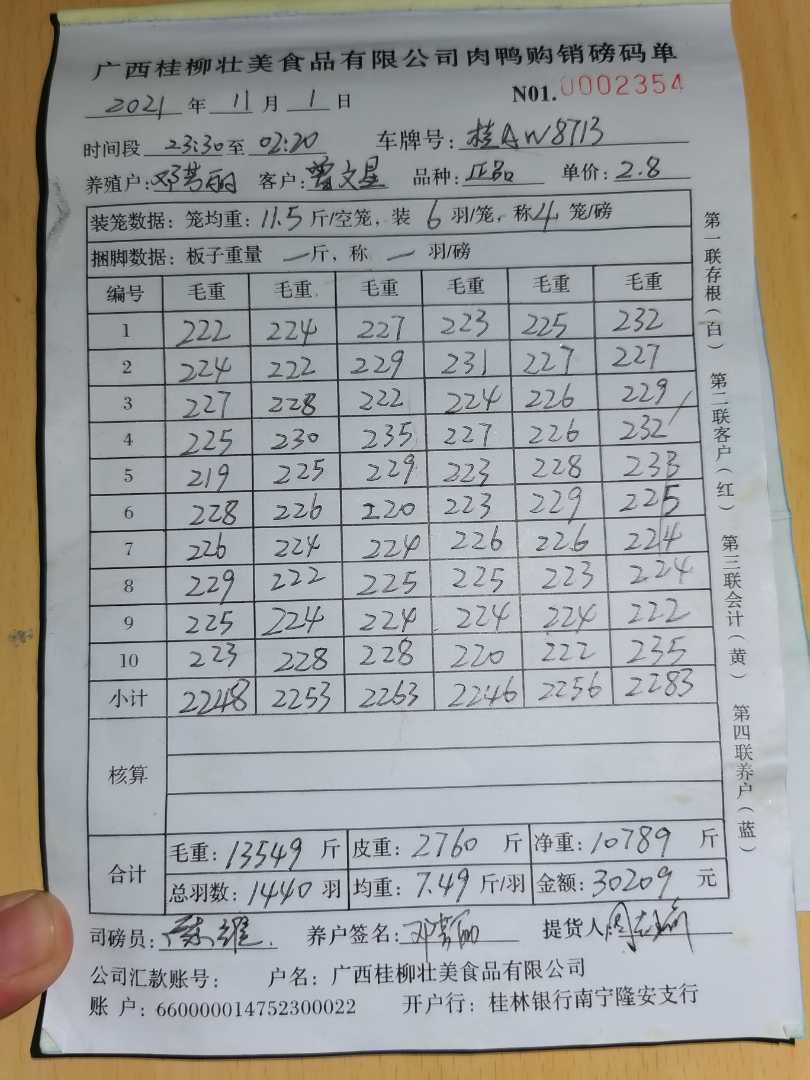 广西桂柳壮美食品有限公司肉鸭购销磅码单
2021 年 11 月 1 日 N01.0002354
时间段 23:30 至 02:20 车牌号: 桂AW8713
养殖户: 邓芳丽 客户: 曾文星 品种: 正品 单价: 2.8
装笼数据: 笼均重: 11.5 斤/空笼, 装 6 羽/笼, 称 4 笼/磅
捆脚数据: 板子重量 一 斤, 称 一 羽/磅
编号 毛重 毛重 毛重 毛重 毛重 毛重
1 222 224 227 223 225 232
2 224 222 229 231 227 227
3 227 228 222 224 226 229
4 225 230 235 227 226 232
5 219 225 229 223 228 233
6 228 226 220 223 229 225
7 226 224 224 226 226 224
8 229 222 225 225 223 224
9 225 224 224 224 224 222
10 223 228 228 220 222 235
小计 2248 2253 2263 2246 2256 2283
核算
合计 毛重: 13549 斤 皮重: 2760 斤 净重: 10789 斤
总羽数: 1440 羽 均重: 7.49 斤/羽 金额: 30209 元
司磅员: 养户签名: 邓芳丽 提货人
公司汇款账号: 户名: 广西桂柳壮美食品有限公司
账 户: 660000014752300022 开户行: 桂林银行南宁隆安支行
第一联存根(白) 第二联客户(红) 第三联会计(黄) 第四联养户(蓝)